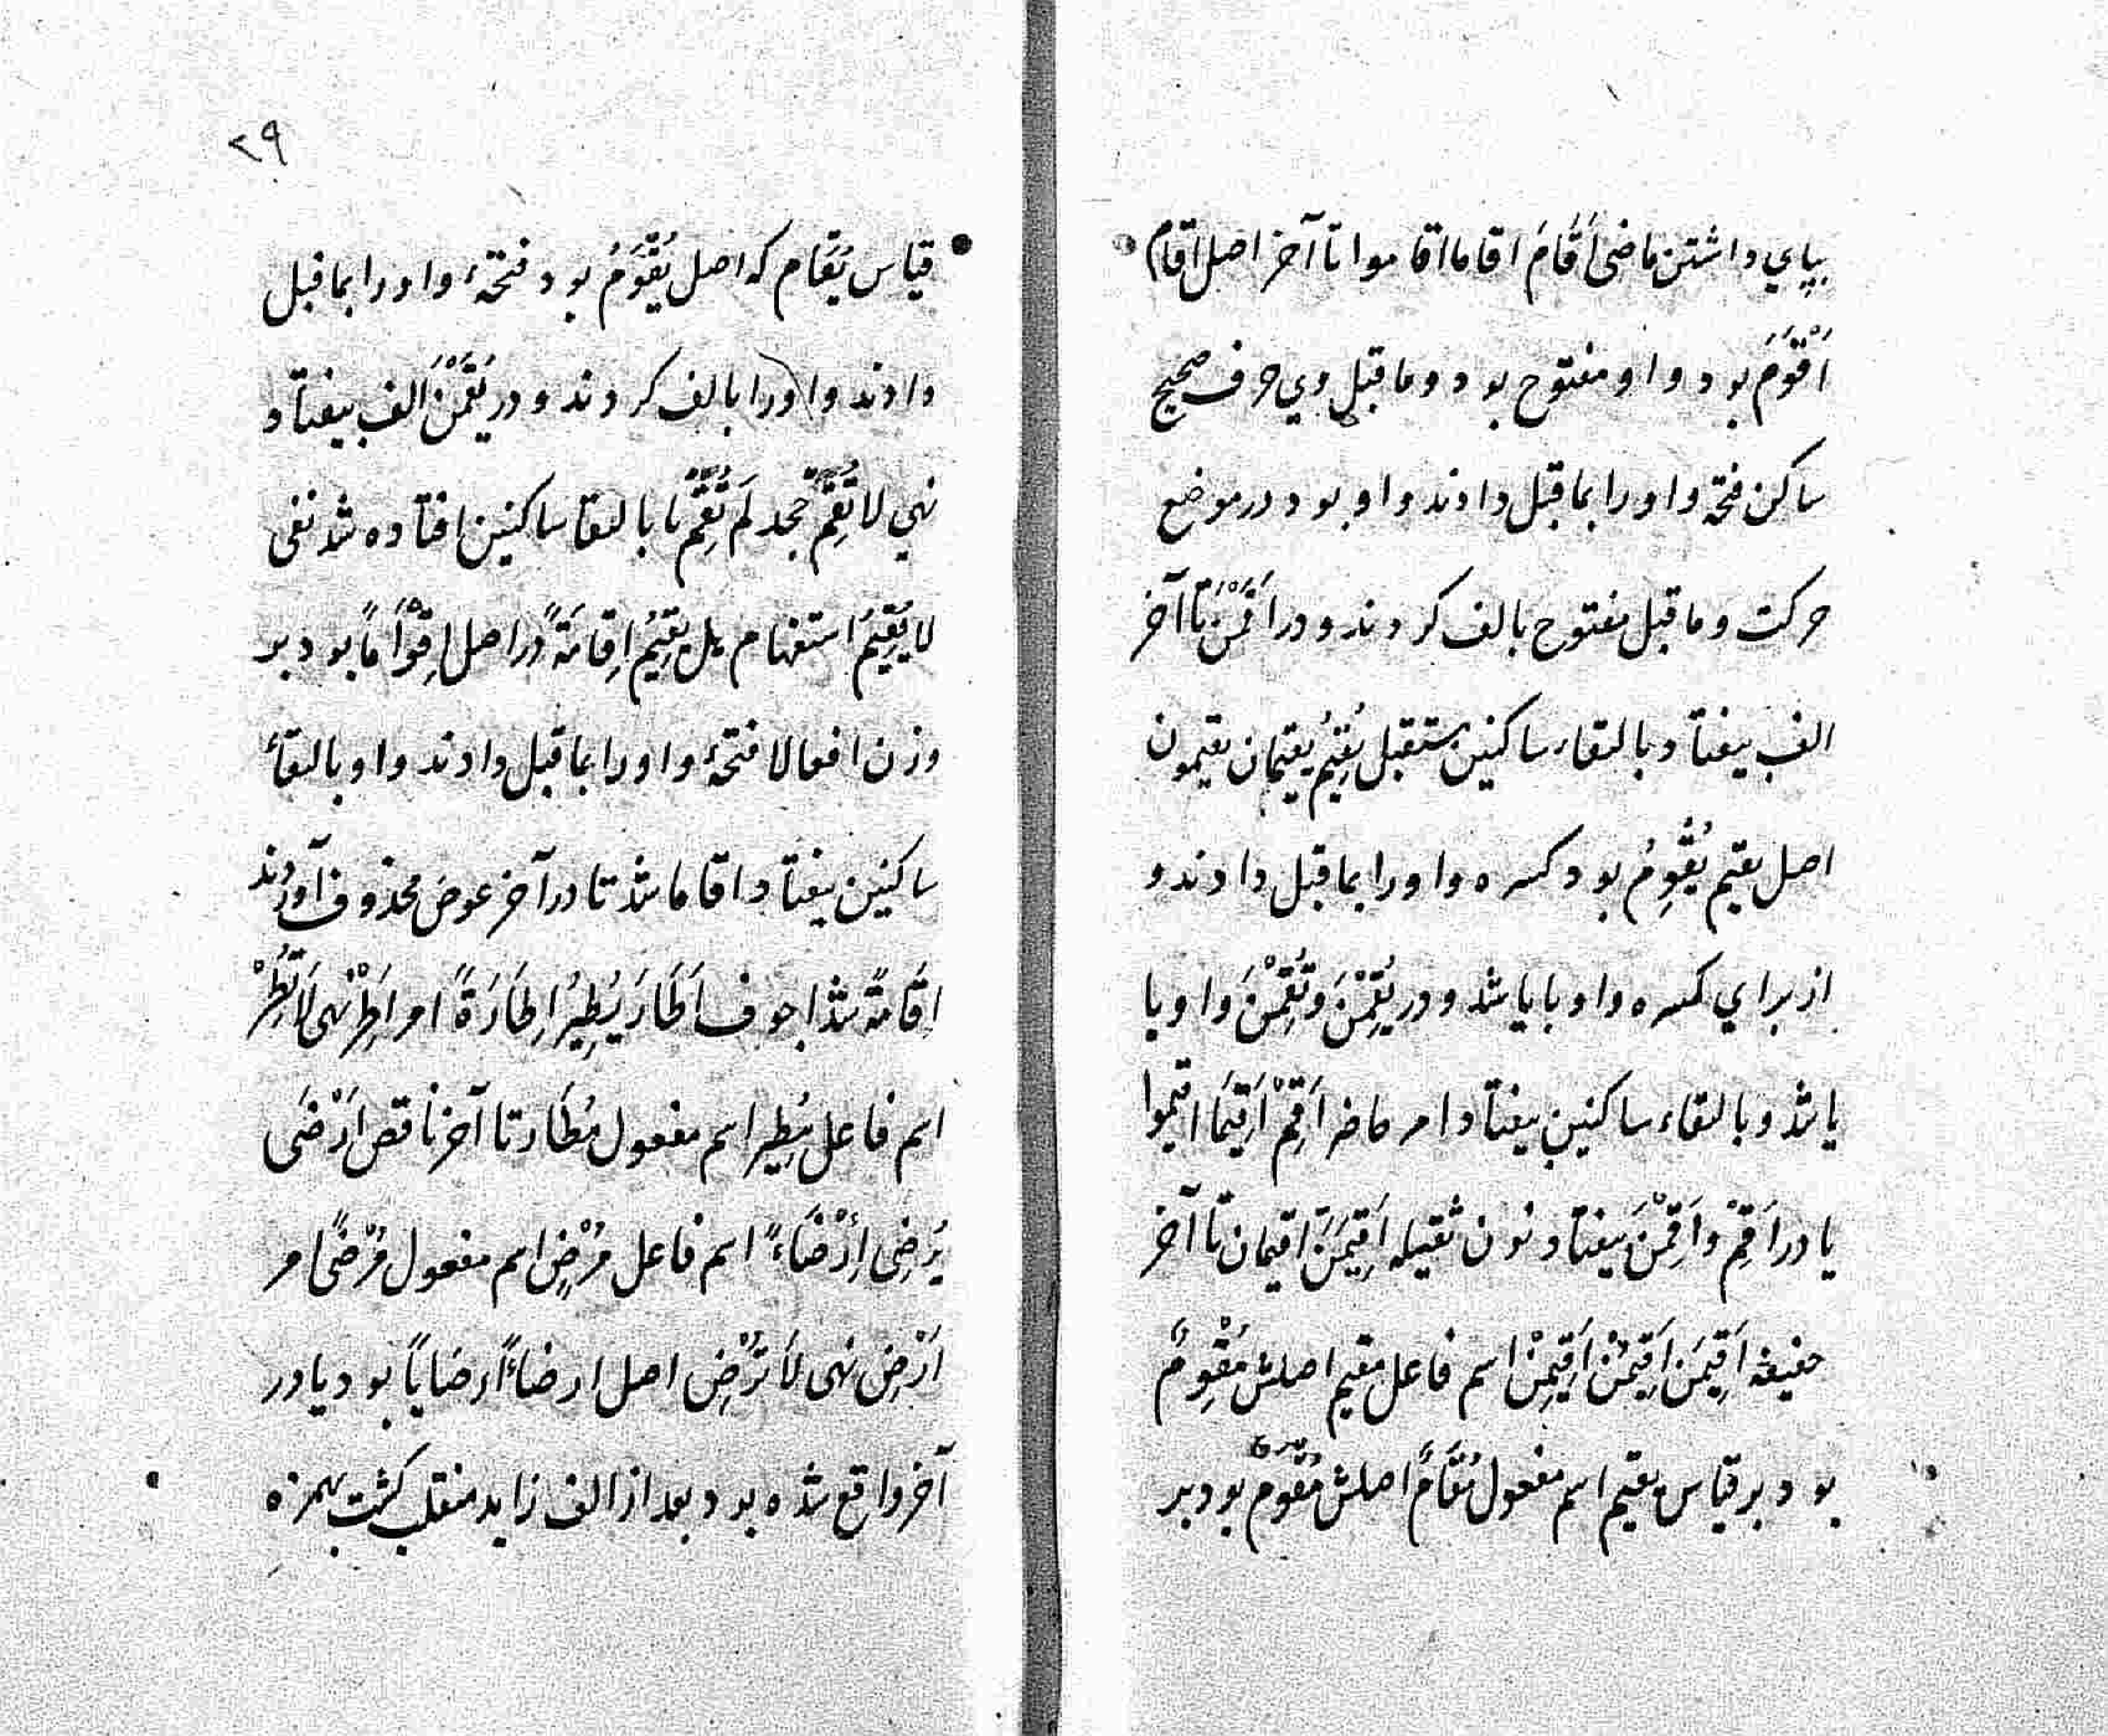 بپاي داشتن ماضی أَقَامَ اقاما اقاموا تا آخر اصل اقام
أَقْوَمَ بود واو مفتوح بود وما قبل وي حرف صحیح
ساکن فتحه واو را بما قبل دادند واو بود در موضع
حرکت وما قبل مفتوح بالف کردند و در أَقَمْنَ تا آخر
الف بیفتاد بالتقاء ساکنین مستقبل یُقِیْمُ یقیمان یقیمون
اصل یقیم یُقْوِمُ بود کسره واو را بما قبل دادند و
از براي کسره واو با یا شد و در یُقِمْنَ وتُقِمْنَ واو با
یا شد و بالتقاء ساکنین بیفتاد امر حاضر أَقِمْ أَقِیْمَا اقیموا
یا در أَقِمْ وأَقِمْنَ بیفتاد نون ثقیله أَقِیْمَنَّ اقیمان تا آخر
خفیفه أَقِیْمَنْ أَقِیْمُنْ أَقِیْمِنْ اسم فاعل مقیم اصلش مُقْوِمٌ
بود بر قیاس یقیم اسم مفعول مُقَامٌ اصلش مُقْوَمٌ بود بر
۲۹
قیاس یُقَام که اصل یُقْوَمُ بود فتحهٔ واو را بما قبل
دادند واو را بالف کردند و در یُقَمْنَ الف بیفتاد و
نهي لا تُقِمْ جحد لَم تُقِمْ یا بالتقا ساکنین افتاده شد نفی
لا یُقِیْمُ استفهام هل یُقِیْمُ إِقَامَةً در اصل إِقْوَاماً بود بر
وزن افعالا فتحهٔ واو را بما قبل دادند واو بالتقاٴ
ساکنین بیفتاد اقاما شد تا در آخر عوض محذوف آوردند
إِقَامَةً شد اجوف أَطَارَ یُطِیْرُ إِطَارَةً امر أَطِرْ نهی لَا تُطِرْ
اسم فاعل مُطِیر اسم مفعول مُطَار تا آخر ناقص أَرْضَی
یُرْضِی إِرْضَاءً اسم فاعل مُرْضٍ اسم مفعول مُرْضًی امر
أَرْضِ نهی لَا تُرْضِ اصل ارضاءً ارضایاً بود یا در
آخر واقع شده بود بعد از الف زاید منقلب کشت بهمزه